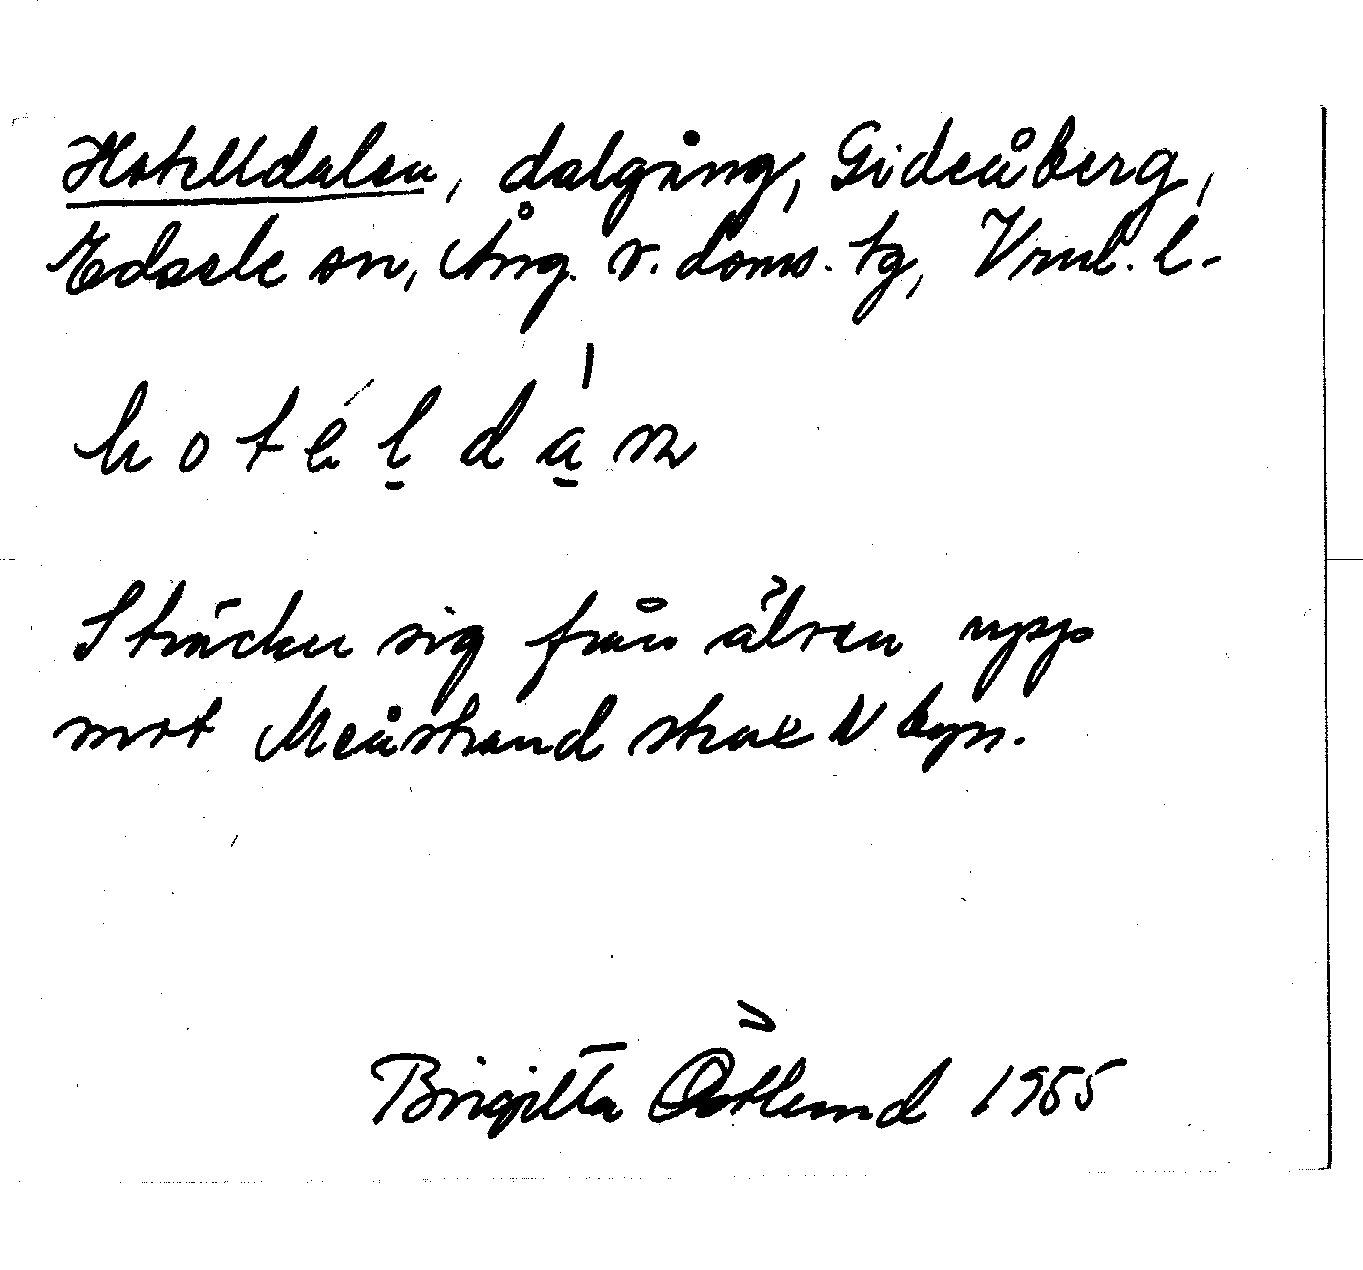 Hotelldalen, dalgång, Gideåberg,
Edsele sn, Ång. v. doms. tg, Vml. l-
hotéldan
Sträcker sig från älven upp
mot Meåstrand strax N byn.
Birgitta Östlund 1955